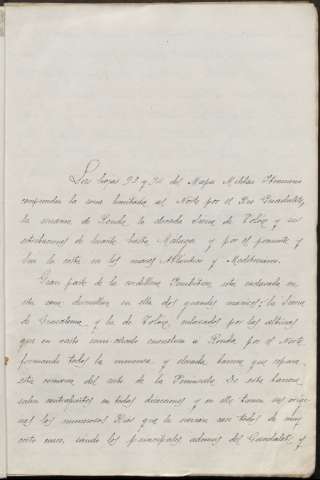 Las hojas 93 y 94 del Mapa Militar Itinerario
comprenden la zona limitada al Norte por el Rio Guadalete,
la serrania de Ronda, la elevada Sierra de Tolox y sus
estribaciones de levante hasta Málaga y por el poniente y
Sur la costa en los mares Atlantico y Mediterraneo.
Gran parte de la cordillera Penibética, está enclavada en
esta zona; dominan en ella dos grandes macizos; la Sierra
de Grazalema, y la de Tolox, enlazados por las alturas
que en vasto semi-circulo circundan á Ronda, por el Norte,
formando todo la inmensa y elevada barrera que separa
esta comarca del resto de la Peninsula. De esta barrera,
salen contrafuertes en todas direcciones y en ella tienen su origen
los numerosos Rios que la surcan casi todos de muy
corto curso, siendo los principales además del Guadalete, y